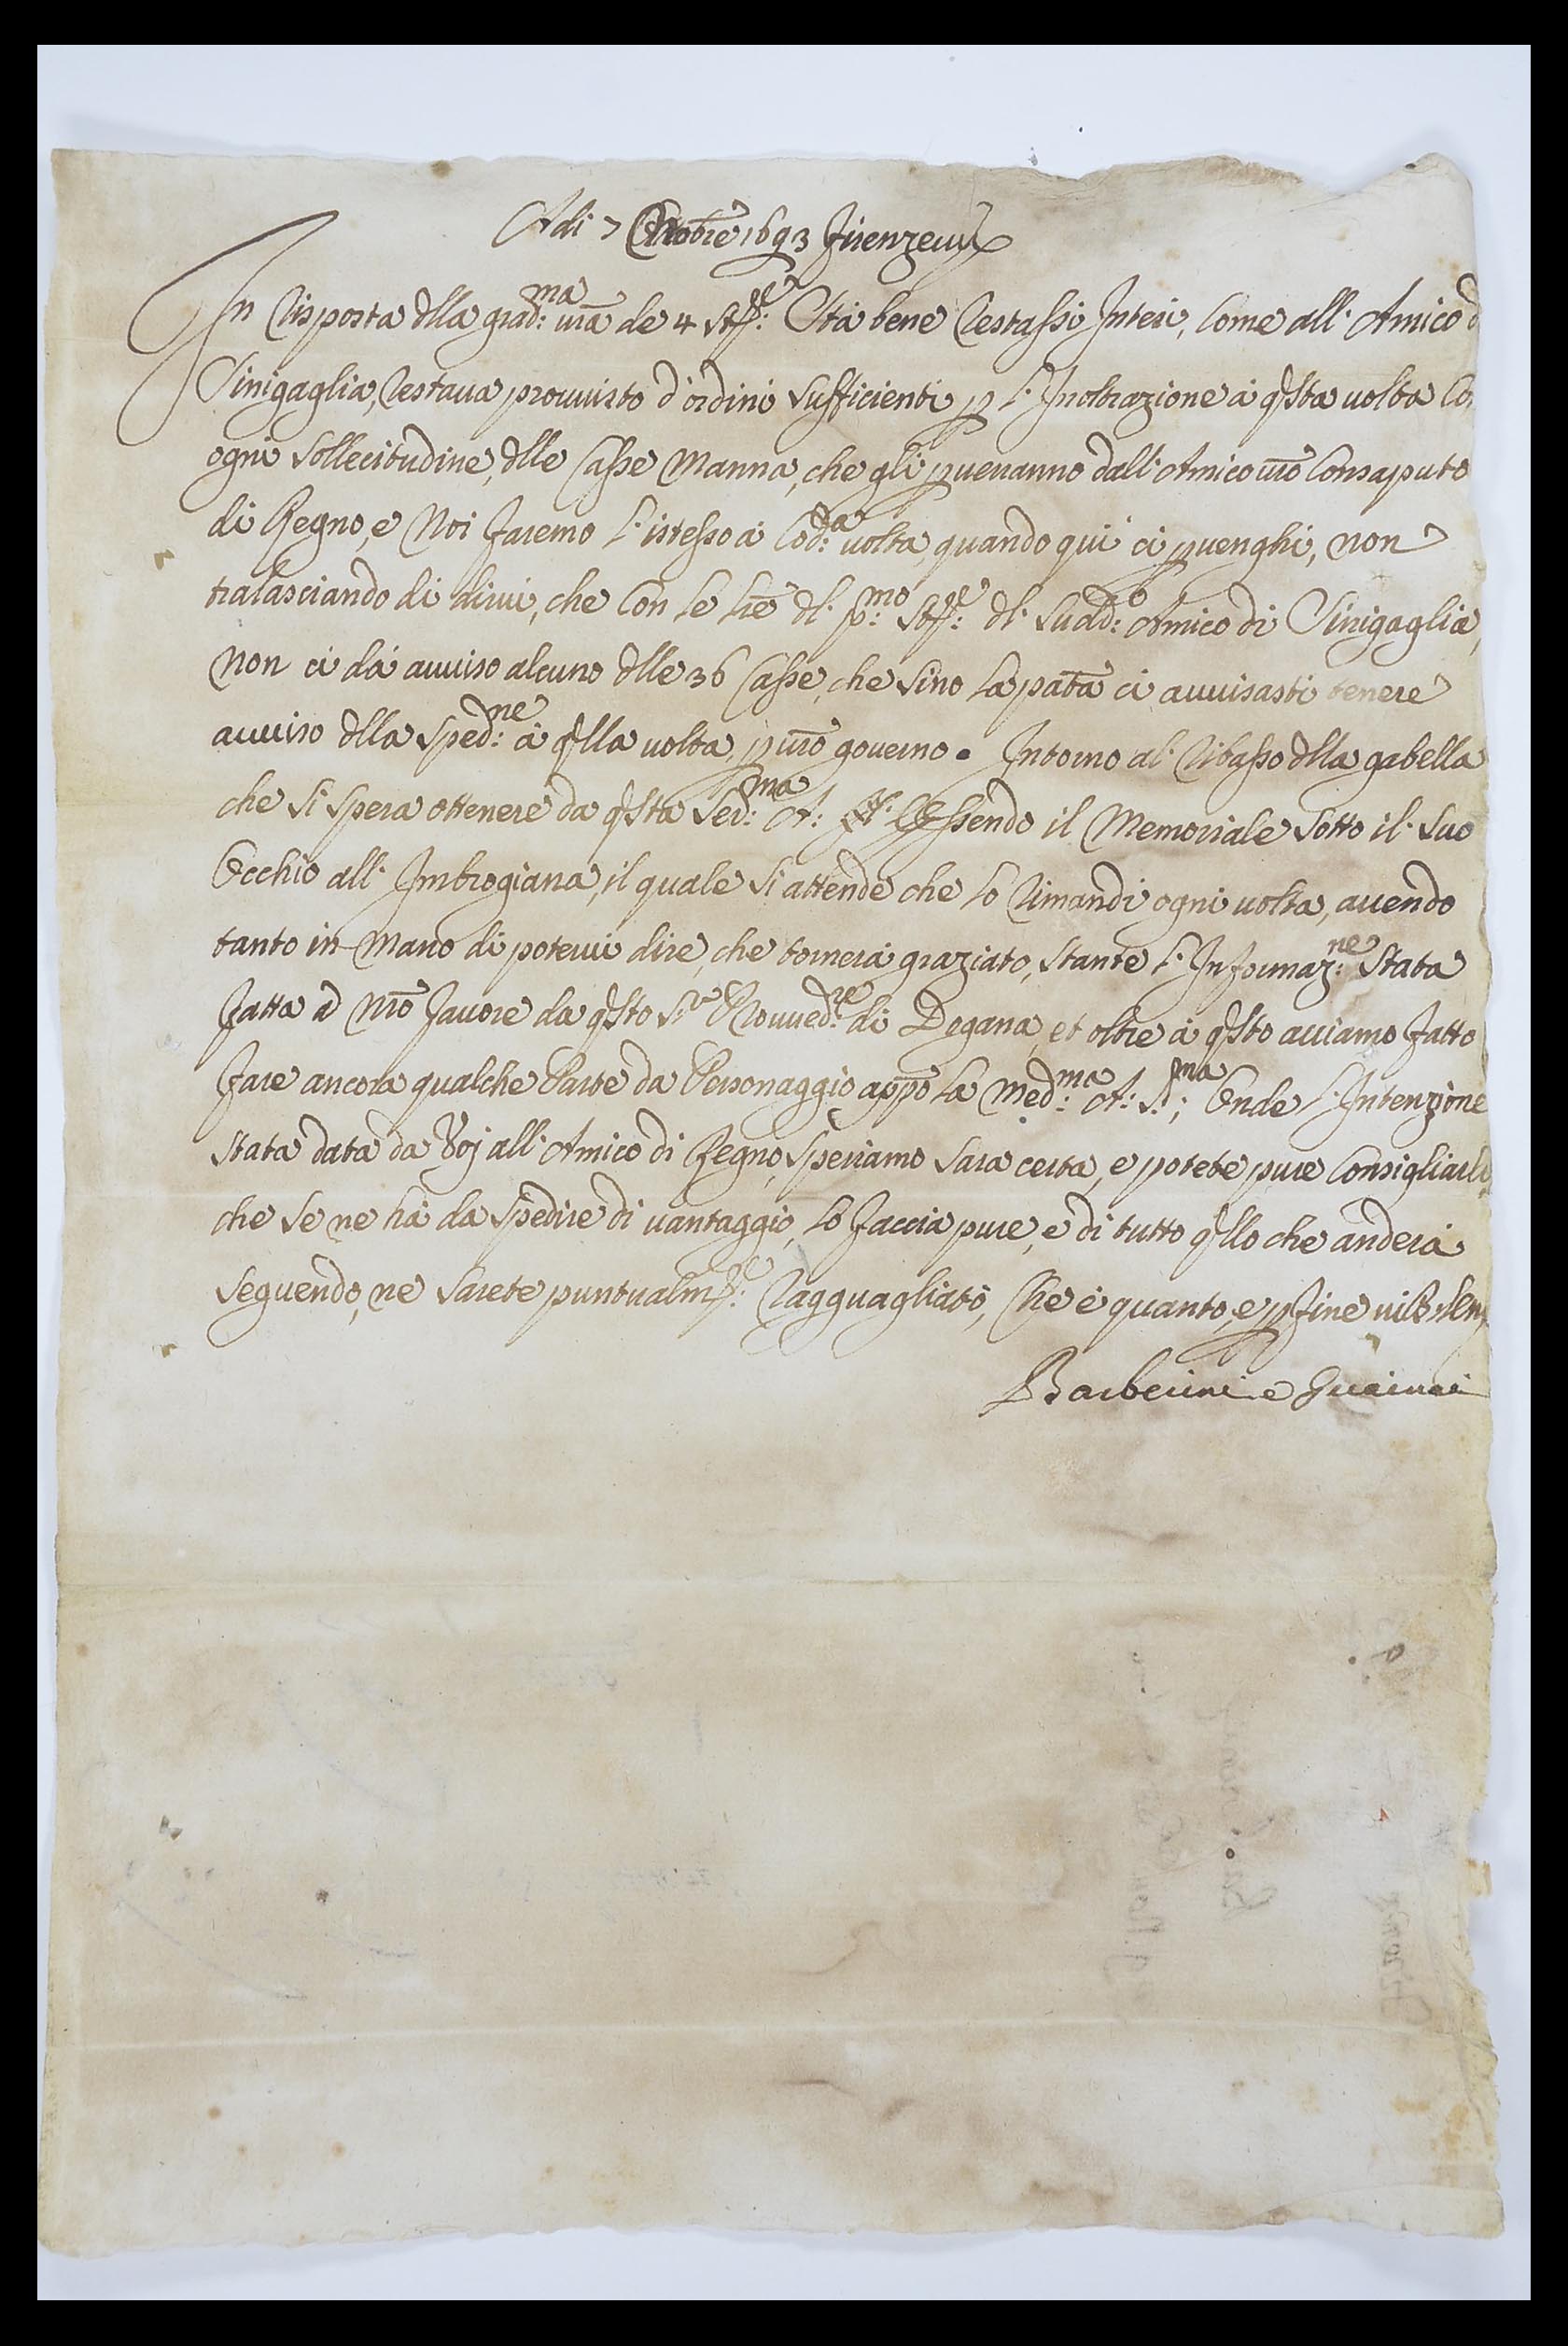 Adi 7 Ottobre 1693 Firenze
In risposta dlla grad:ma vrã de 4 st:te Stà bene restassi Intesi, Come all' Amico d
Sinigaglia, restaua prouuisto d'ordini sufficienti p l'Inoltrazione à qsta uolta Co
ogni sollecitudine, dlle Casse Manna, che gli peruerranno dall' Amico vrõ Consaputo
di Regno, e Noi faremo l'istesso à Cod:a uolta, quando qui ci peruenghi, non
tralasciando di dirui, che Con le lrẽ dl' p:mo st:te dl' sudd:o Amico di Sinigaglia,
non ci dà auuiso alcuno dlle 36 Casse, che sino la pãta ci auuisasti tenere
auuiso dlla sped:ne à qlla uolta, p vrõ gouerno. Intorno al' ribasso dlla gabella
che si spera ottenere da qsta Ser:ma A: Essendo il Memoriale sotto il suo
Occhio all' Imbrogiana, il quale si attende che lo rimandi ogni uolta, auendo
tanto in mano di poterui dire, che tornerà graziato, stante l' Informaz:ne stata
fatta à nrõ fauore da qsto S:r Prouued:re di Dogana, et oltre à qsto auiamo fatto
fare ancora qualche Parte da Personaggio appõ la Med:ma A: S:ma; Onde l'Intenzione
stata data da Voj all' Amico di Regno, speriamo sarà certa, e potete pure Consigliarlo
che se ne hà da spedire di uantaggio, lo faccia pure, e di tutto qllo che anderà
seguendo, ne sarete puntualm:te ragguagliati, Che è quanto, e p fine
Barberini e